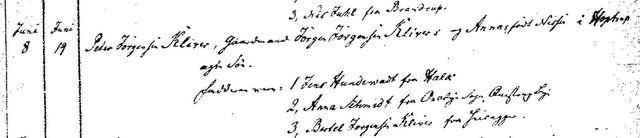 3, Nis Juhl fra Brandrup.
Juni Juni
8 19 Peter Jörgensen Kliver, Gaardmand Jörgen Jörgensen Klivers og Anna, født Nissen i Hoptrup
ægte Søn.
Faddere vare: 1 Jens Hundewadt fra Halk
2, Anna Schmidt fra Sogn,
3, Bertel Jörgensen Kliver fra